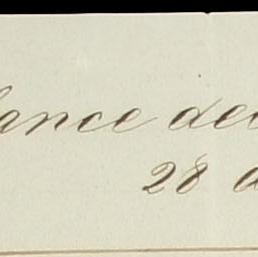 ance dec
28 d